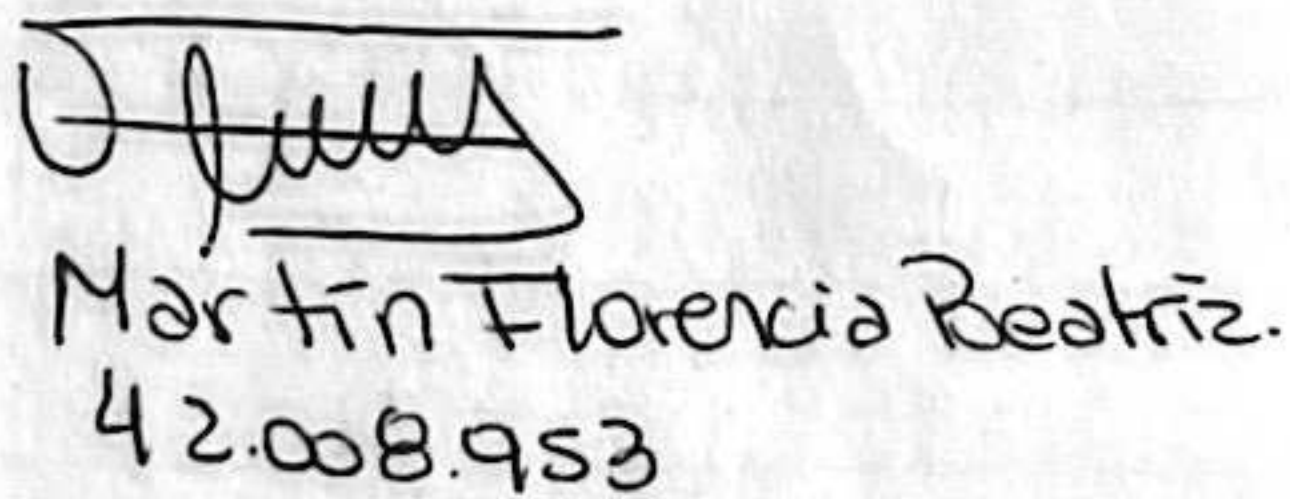 Martín Florencia Beatriz.
42.008.953